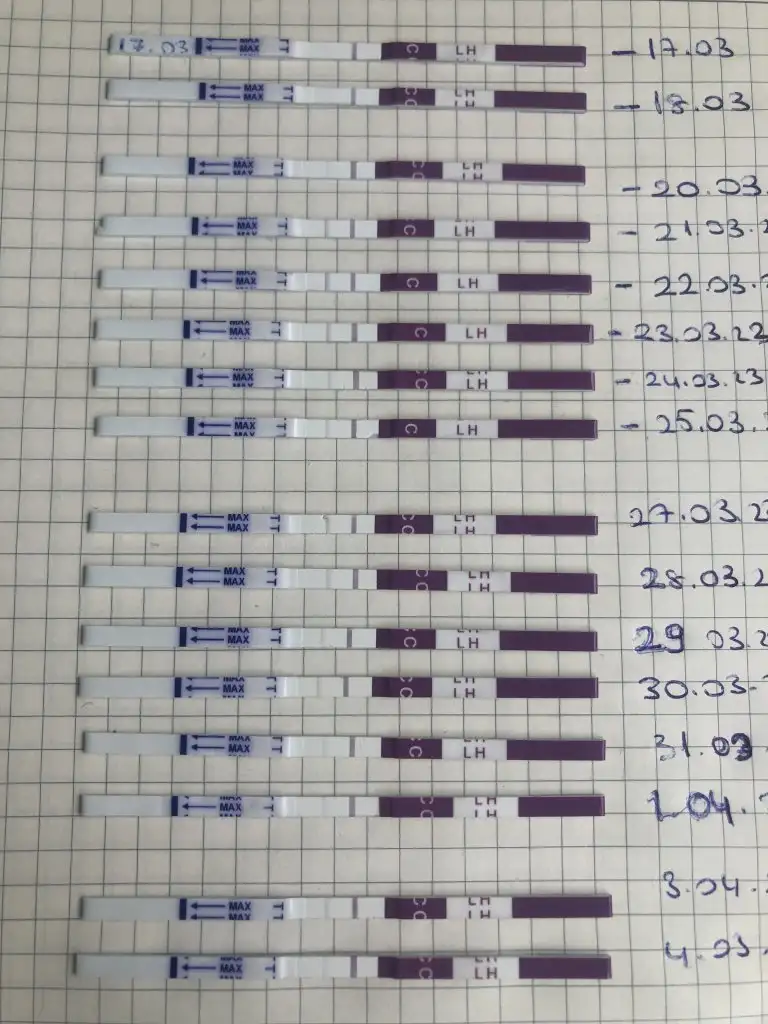 17.03 MAX MAX TT C LH - 17.03
MAX MAX TT C LH - 18.03
MAX TT C LH - 20.03.
MAX C LH - 21.03.2
MAX C LH - 22.03.
MAX C LH - 23.03.23
MAX C LH - 24.03.23
MAX C LH - 25.03.
MAX MAX C C LH 27.03.23
MAX MAX C C LH 28.03.2
MAX MAX C C LH 29 03.2
MAX C C LH 30.03.
MAX C C LH 31.03
MAX C C LH 1.04.
MAX C C LH 3.04.
MAX C C LH 4.03.